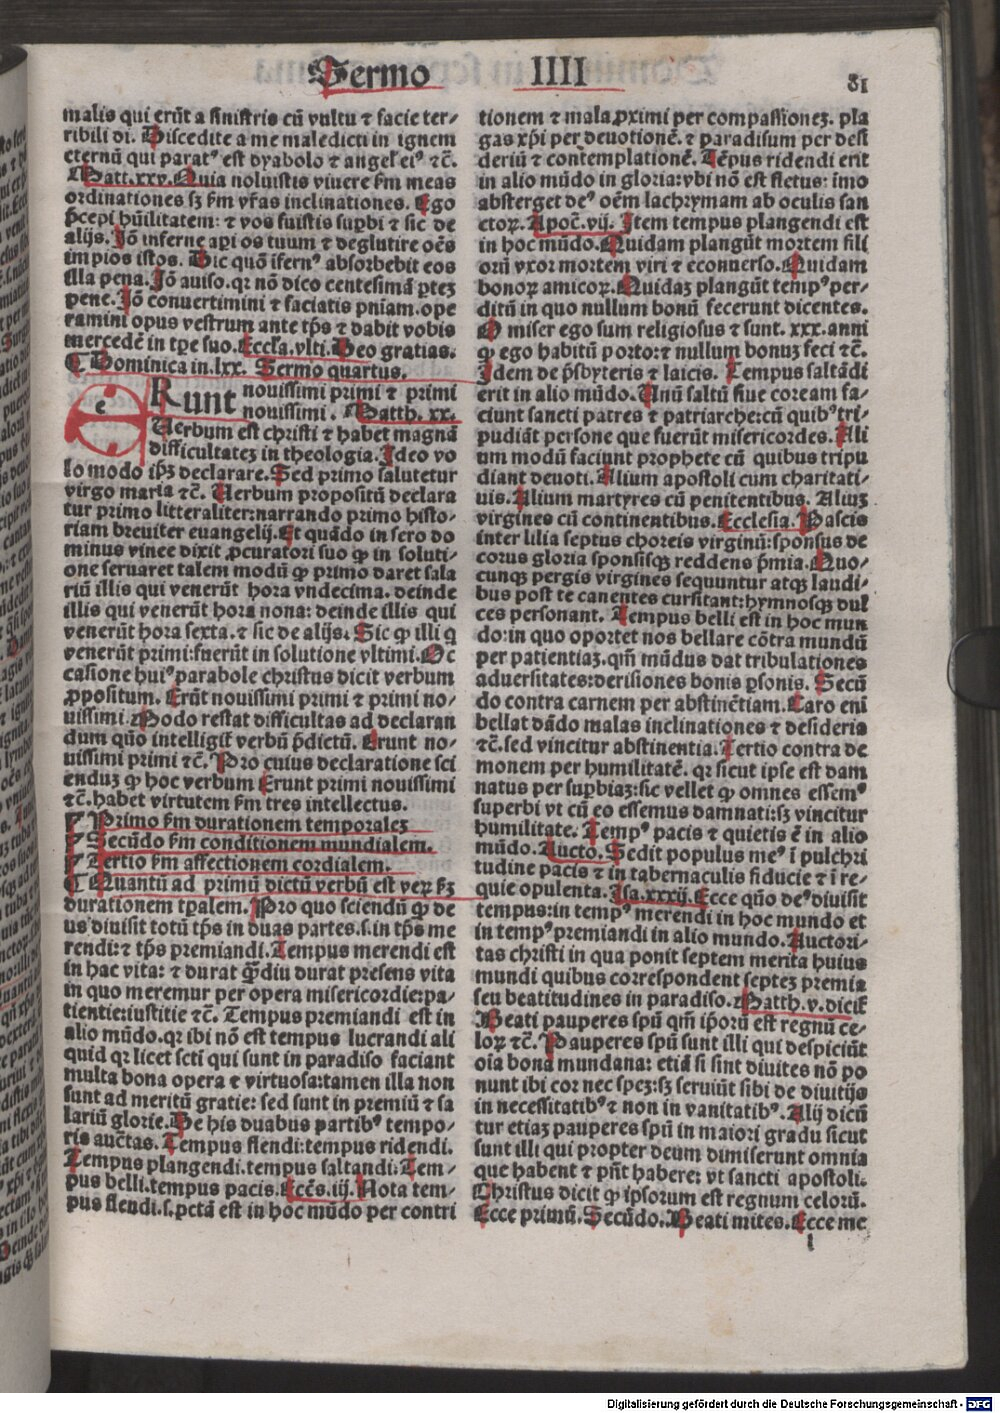 Sermo IIII 81
malis qui erũt a sinistris cũ vultu ⁊ facie ter-
ribili di. Discedite a me maledicti in ignem
eternũ qui paratꝰ est dyabolo ⁊ angel' eiꝰ ⁊c̃.
Matt.xxv. Quia noluistis viuere ẜm meas
ordinationes sꝫ ẜm vr̃as inclinationes. Ego
p̃cepi hũilitatem: ⁊ vos fuistis supb̃i ⁊ sic de
alijs. Jõ inferne api os tuum ⁊ deglutire oẽs
impios istos. Dic quõ ifernꝰ absorbebit eos
illa pena. Jõ auiso. qr nõ dico centesimã ptez
pene. Jõ conuertimini ⁊ faciatis pniam. ope
ramini opus vestrum ante tp̃s ⁊ dabit vobis
mercedẽ in tpe suo. Eccla. vlti. Deo gratias.
¶ Dominica in .lxx. Sermo quartus.
eRunt nouissimi primi ⁊ primi
nouissimi. Matth. xx.
Verbum est christi ⁊ habet magnã
difficultatez in theologia. Ideo vo
lo modo ip̃z declarare. Sed primo salutetur
virgo maria ⁊c̃. Verbum propositũ declara
tur primo litteraliter: narrando primo histo-
riam breuiter euangelij. Et quãdo in sero do
minus vinee dixit ꝓcuratori suo ꝙ in soluti-
one seruaret talem modũ ꝙ primo daret sala
riũ illis qui venerũt hora vndecima. deinde
illis qui venerũt hora nona: deinde illis qui
venerũt hora sexta. ⁊ sic de alijs. Sic ꝙ illi q
venerũt primi: fuerũt in solutione vltimi. Oc
casione huiꝰ parabole christus dicit verbum
ꝓpositum. Erũt nouissimi primi ⁊ primi no-
uissimi. Modo restat difficultas ad declaran
dum quõ intelligit̃ verbũ p̃dictũ. Erunt no-
uissimi primi ⁊c̃. Pro cuius declaratione sci
enduz ꝙ hoc verbum Erunt primi nouissimi
⁊c̃. habet virtutem ẜm tres intellectus.
¶ Primo ẜm durationem temporalez
¶ Secũdo ẜm conditionem mundialem.
¶ Tertio ẜm affectionem cordialem.
¶ Quantũ ad primũ dictũ verbũ est veꝝ ẜꝫ
durationem tpalem. Pro quo sciendũ ꝙ de
us diuisit totũ tp̃s in duas partes. s. in tp̃s me
rendi: ⁊ tp̃s premiandi. Tempus merendi est
in hac vita: ⁊ durat q̃diu durat presens vita
in quo meremur per opera misericordie: pa-
tientie: iustitie ⁊c̃. Tempus premiandi est in
alio mũdo. qr ibi nõ est tempus lucrandi ali
quid qr licet scti qui sunt in paradiso faciant
multa bona opera ⁊ virtuosa: tamen illa non
sunt ad meritũ gratie: sed sunt in premiũ ⁊ sa
lariũ glorie. De his duabus partibꝰ tempo-
ris auc̃tas. Tempus flendi: tempus ridendi.
Tempus plangendi. tempus saltandi: Tem-
pus belli. tempus pacis. Eccẽs. iij. Nota tem-
pus flendi. s. pctã est in hoc mũdo per contri
tionem ⁊ mala ꝓximi per compassionez. pla
gas xp̃i per deuotionẽ. ⁊ paradisum per desi
deriũ ⁊ contemplationẽ. Tẽpus ridendi erit
in alio mũdo in gloria: vbi nõ est fletus: imo
absterget deꝰ oẽm lachrymam ab oculis san
ctoꝝ. Apoc̃. vij. Item tempus plangendi est
in hoc mũdo. Quidam plangũt mortem fili
orũ vxor mortem viri ⁊ econuerso. Quidam
bonoꝝ amicoꝝ. Quidaz plangũt tempꝰ per-
ditũ in quo nullum bonũ fecerunt dicentes.
O miser ego sum religiosus ⁊ sunt .xxx. anni
ꝙ ego habitũ porto: ⁊ nullum bonuz feci ⁊c̃.
Idem de p̃sbyteris ⁊ laicis. Tempus saltãdi
erit in alio mũdo. Unũ saltũ siue coream fa-
ciunt sancti patres ⁊ patriarche: cũ quibꝰ tri-
pudiãt persone que fuerũt misericordes. Ali
um modũ faciunt prophete cũ quibus tripu
diant deuoti. Alium apostoli cum charitati-
uis. Alium martyres cũ penitentibus. Aliuz
virgines cũ continentibus. Ecclesia. Pascis
inter lilia septus choreis virginũ: sponsus de
corus gloria sponsisqꝫ reddens p̃mia. Quo-
cunqꝫ pergis virgines sequuntur atqꝫ laudi-
bus post te canentes cursitant: hymnosqꝫ dul
ces personant. Tempus belli est in hoc mun
do: in quo oportet nos bellare cõtra mundũ
per patientiaz. qm̃ mũdus dat tribulationes
aduersitates: derisiones bonis p̱sonis. Secũ
do contra carnem per abstinẽtiam. Caro eni
bellat dãdo malas inclinationes ⁊ desideria
⁊c̃. sed vincitur abstinentia. Tertio contra de
monem per humilitatẽ. qr sicut ipse est dam
natus per supbiaz: sic vellet ꝙ omnes essemꝰ
superbi vt cũ eo essemus damnati: sꝫ vincitur
humilitate. Tempꝰ pacis ⁊ quietis ẽ in alio
mũdo. Aucto. Sedit populus meꝰ ĩ pulchri
tudine pacis ⁊ in tabernaculis fiducie ⁊ ĩ re-
quie opulenta. Isa. xxxij. Ecce quõ deꝰ diuisit
tempus: in tempꝰ merendi in hoc mundo et
in tempꝰ premiandi in alio mundo. Auctori-
tas christi in qua ponit septem merita huius
mundi quibus correspondent septez premia
seu beatitudines in paradiso. Matth. v. dicit̃
Beati pauperes spũ qm̃ ip̃orũ est regnũ ce-
loꝝ ⁊c̃. Pauperes spũ sunt illi qui despiciũt
oia bona mundana: etiã si sint diuites nõ po
nunt ibi cor nec spez: sꝫ seruiũt sibi de diuitijs
in necessitatibꝰ ⁊ non in vanitatibꝰ. Alij dicũ
tur etiaz pauperes spũ in maiori gradu sicut
sunt illi qui propter deum dimiserunt omnia
que habent ⁊ pñt habere: vt sancti apostoli.
Christus dicit ꝙ ipsorum est regnum celorũ.
Ecce primũ. Secũdo. Beati mites. Ecce me
l
Digitalisierung gefördert durch die Deutsche Forschungsgemeinschaft - DFG